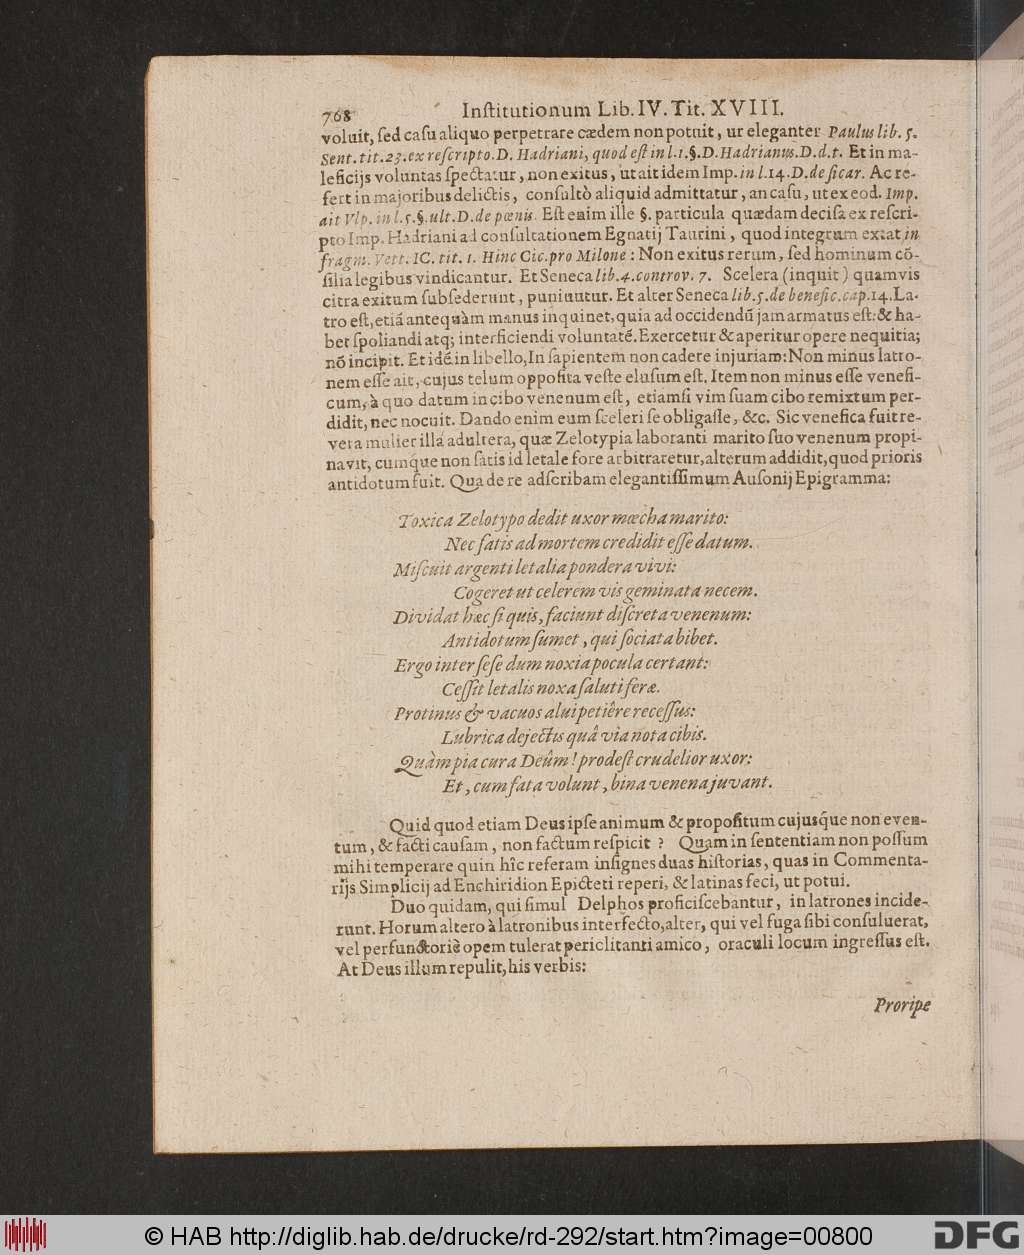 768 Inſtitutionum Lib. IV. Tit. XVIII.
voluit, ſed caſu aliquo perpetrare cædem non potuit, ut eleganter Paulus lib. 5.
Sent. tit. 23. ex reſcripto. D. Hadriani, quod eſt in l. 1. §. D. Hadrianus. D. d. t. Et in ma-
leficijs voluntas ſpectatur, non exitus, ut ait idem Imp. in l. 14. D. de ſicar. Ac re-
fert in majoribus delictis, conſultò aliquid admittatur, an caſu, ut ex eod. Imp.
ait Vlp. in l. 5. §. ult. D. de pœnis. Eſt enim ille §. particula quædam deciſa ex reſcri-
pto Imp. Hadriani ad conſultationem Egnatij Taurini, quod integrum extat in
fragm. Vett. IC. tit. 1. Hinc Cic. pro Milone: Non exitus rerum, ſed hominum cõ-
ſilia legibus vindicantur. Et Seneca lib. 4. controv. 7. Scelera (inquit) quamvis
citra exitum ſubſederunt, puniuntur. Et alter Seneca lib. 5. de benefic. cap. 14. La-
tro eſt, etiã antequàm manus inquinet, quia ad occidendũ jam armatus eſt: & ha-
bet ſpoliandi atq; interficiendi voluntatẽ. Exercetur & aperitur opere nequitia;
nõ incipit. Et idẽ in libello, In ſapientem non cadere injuriam: Non minus latro-
nem eſſe ait, cujus telum oppoſita veſte eluſum eſt. Item non minus eſſe venefi-
cum, à quo datum in cibo venenum eſt, etiamſi vim ſuam cibo remixtum per-
didit, nec nocuit. Dando enim eum ſceleri ſe obligaſſe, &c. Sic venefica fuit re-
vera mulier illa adultera, quæ Zelotypia laboranti marito ſuo venenum propi-
navit, cumque non ſatis id letale fore arbitraretur, alterum addidit, quod prioris
antidotum fuit. Qua de re adſcribam elegantiſſimum Auſonij Epigramma:
Toxica Zelotypo dedit uxor mœcha marito:
Nec ſatis ad mortem credidit eſſe datum.
Miſcuit argenti letalia pondera vivi:
Cogeret ut celerem vis geminata necem.
Dividat hæc ſi quis, faciunt diſcreta venenum:
Antidotum ſumet, qui ſociata bibet.
Ergo inter ſeſe dum noxia pocula certant:
Ceſſit letalis noxa ſalutiferæ.
Protinus & vacuos alui petiêre receſſus:
Lubrica dejectis quâ via nota cibis.
Quàm pia cura Deûm! prodeſt crudelior uxor:
Et, cum fata volunt, bina venena juvant.
Quid quod etiam Deus ipſe animum & propoſitum cujuſque non even-
tum, & facti cauſam, non factum reſpicit? Quam in ſententiam non poſſum
mihi temperare quin hîc referam inſignes duas hiſtorias, quas in Commenta-
rijs Simplicij ad Enchiridion Epicteti reperi, & latinas feci, ut potui.
Duo quidam, qui ſimul Delphos proficiſcebantur, in latrones incide-
runt. Horum altero à latronibus interfecto, alter, qui vel fuga ſibi conſuluerat,
vel perfunctoriè opem tulerat periclitanti amico, oraculi locum ingreſſus eſt.
At Deus illum repulit, his verbis:
Proripe
© HAB http://diglib.hab.de/drucke/rd-292/start.htm?image=00800
DFG